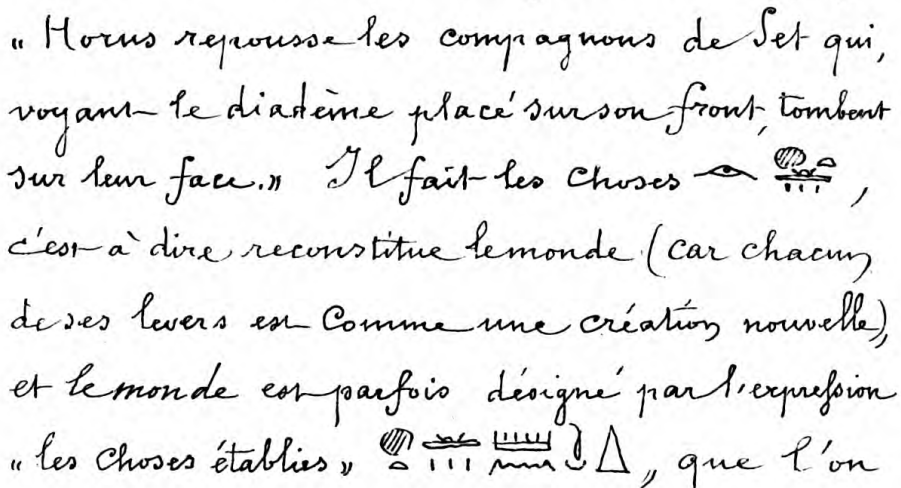 « Horus repousse les compagnons de Set qui,
voyant le diadème placé sur son front, tombent
sur leur face. » Il fait les choses 𓁹 𓐍𓏏𓏛𓏥,
c'est à dire reconstitue le monde (car chacun
de ses levers est comme une création nouvelle),
et le monde est parfois désigné par l'expression
« les choses établies » 𓐍𓏏𓏛𓏥 𓏠𓈖 𓐠, que l'on